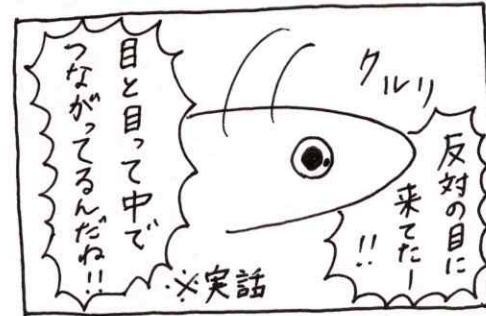 クルリ
反対の目に
来てたー
!!
目と目って中で
つながってるんだね!!
※実話